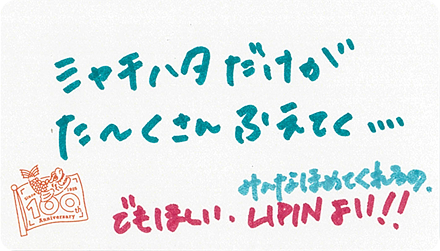 ミャチハタだけが
た〜くさん ふえてく....
み〜なほめてくれるの.
でもほしい. LIPINよい!!
100th
Anniversary